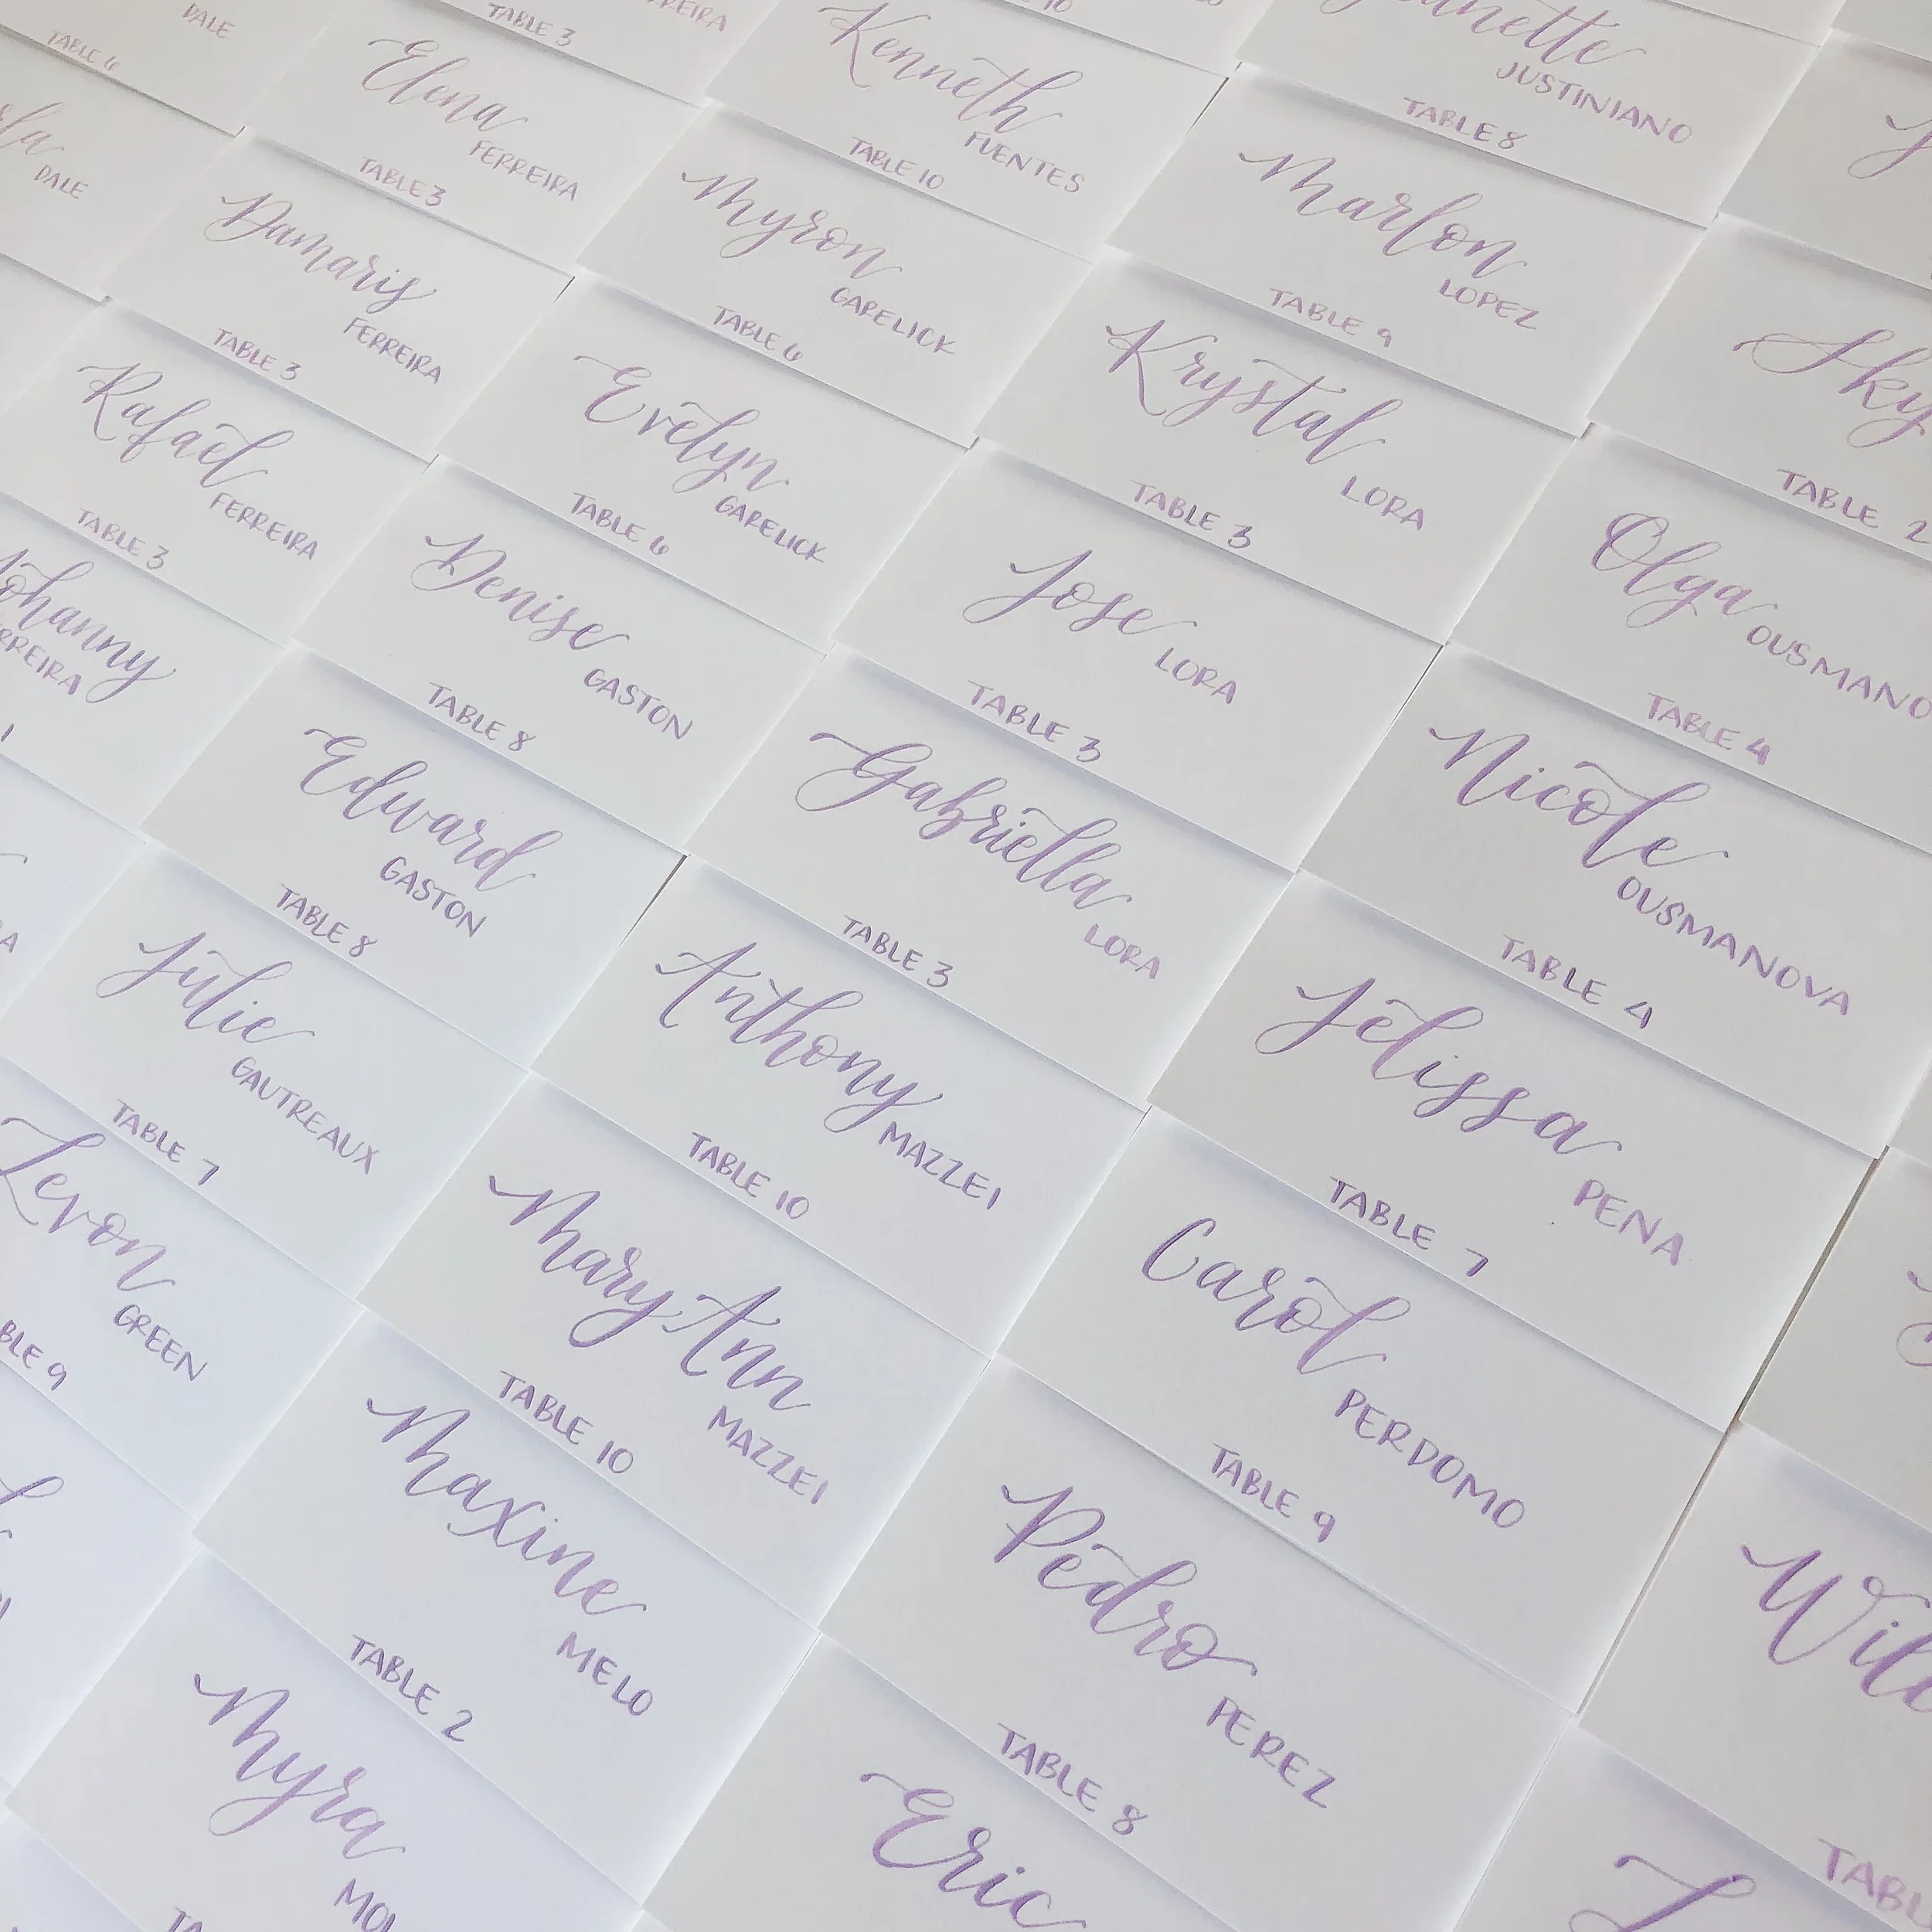 DALE
TABLE 6
DALE
TABLE 3
Elena
FERREIRA
TABLE 3
Damaris
FERREIRA
TABLE 3
Rafael
FERREIRA
TABLE 3
Johanny
Kenneth
FUENTES
TABLE 10
Myron
GARELICK
TABLE 6
Evelyn
GARELICK
TABLE 6
Denise
GASTON
TABLE 8
Edward
GASTON
TABLE 8
Julie
GAUTREAUX
TABLE 7
GREEN
JUSTINIANO
TABLE 8
Marlon
LOPEZ
TABLE 9
Krystal
LORA
TABLE 3
Jose
LORA
TABLE 3
Gabriella
LORA
TABLE 3
Anthony
MAZZEI
TABLE 10
Mary Ann
MAZZEI
TABLE 10
Maxine
MELO
TABLE 2
Myra
TABLE 2
Olga
OUSMANO
TABLE 4
Nicole
OUSMANOVA
TABLE 4
Jelissa
PENA
TABLE 7
Carol
PERDOMO
TABLE 9
Pedro
PEREZ
TABLE 8
Eric